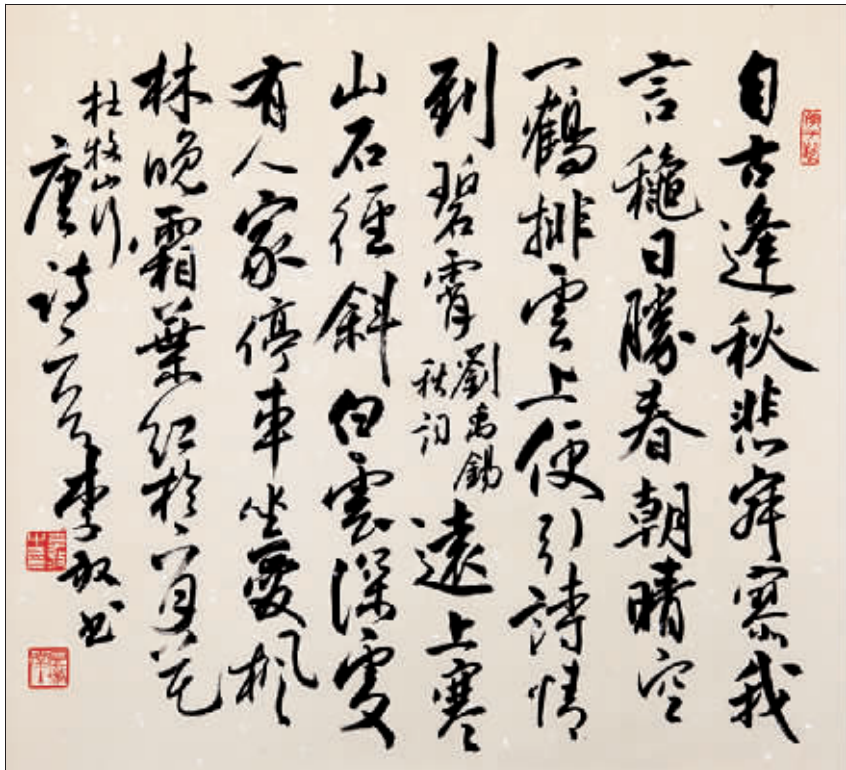 自古逢秋悲寂寥我
言穐日勝春朝晴空
一鶴排雲上便引詩情
到碧霄
劉禹錫
秋詞
遠上寒
山石徑斜白雲深處
有人家停車坐愛楓
林晚霜葉紅於二月花
杜牧山行
唐诗二首李书